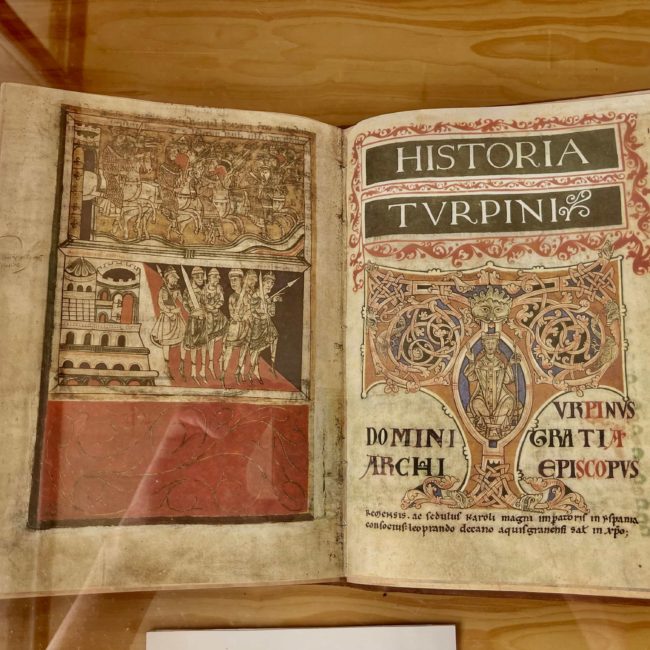 HISTORIA
TVRPINI
TVRPINVS
DOMINI GRATIA
ARCHI EPISCOPVS
ac sedulus karoli magni impatoris in
consocius leoprando decano aquisgranensi salt in xpo: